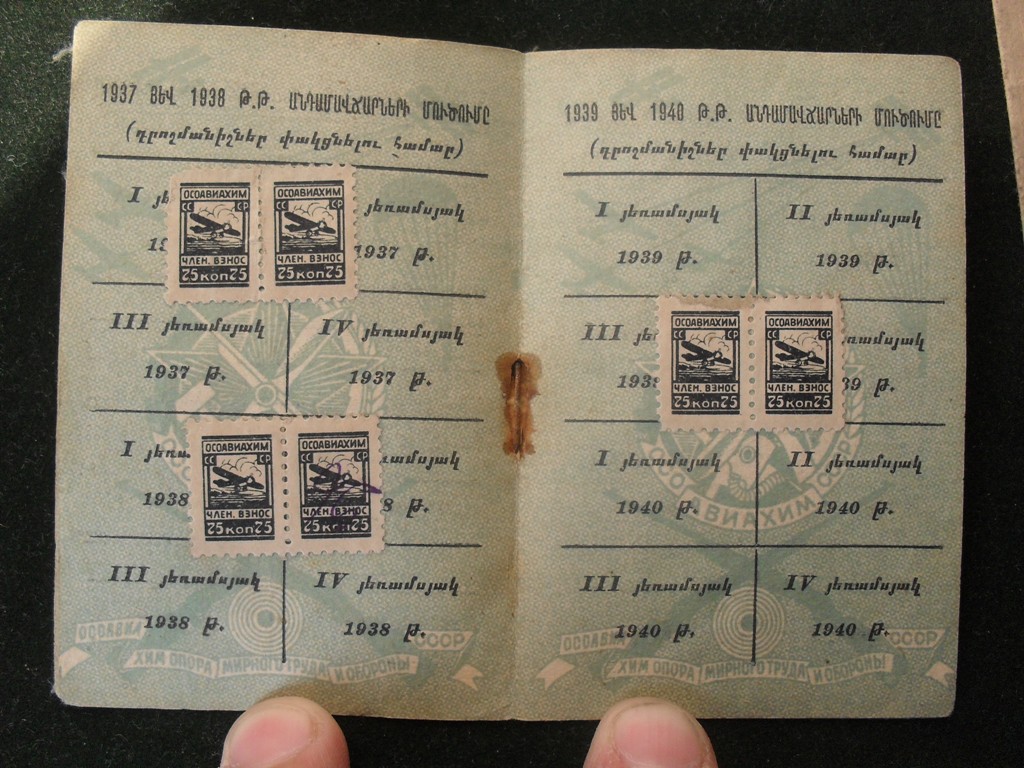 1937 ՅԵՎ 1938 Թ.Թ. ԱՆԴԱՄԱՎՃԱՐՆԵՐԻ ՄՈՒԾՈՒՄԸ
(դրոշմանիշներ փակցնելու համար)
I
յեռամսյակ
1937 թ.
ОСОАВИАХИМ
СС СР
ЧЛЕН. ВЗНОС
75 КОП 75
ОСОАВИАХИМ
СС СР
ЧЛЕН. ВЗНОС
75 КОП 75
III յեռամսյակ
1937 թ.
IV յեռամսյակ
1937 թ.
I
1938
ОСОАВИАХИМ
СС СР
ЧЛЕН. ВЗНОС
75 КОП 75
ОСОАВИАХИМ
СС СР
ЧЛЕН. ВЗНОС
75 КОП 75
III յեռամսյակ
1938 թ.
IV յեռամսյակ
1938 թ.
ОСОАВИА
ХИМ ОПОРА МИРНОГО ТРУДА И ОБОРОНЫ
СССР
1939 ՅԵՎ 1940 Թ.Թ. ԱՆԴԱՄԱՎՃԱՐՆԵՐԻ ՄՈՒԾՈՒՄԸ
(դրոշմանիշներ փակցնելու համար)
I յեռամսյակ
1939 թ.
II յեռամսյակ
1939 թ.
III
ОСОАВИАХИМ
СС СР
ЧЛЕН. ВЗНОС
75 КОП 75
ОСОАВИАХИМ
СС СР
ЧЛЕН. ВЗНОС
75 КОП 75
I յեռամսյակ
1940 թ.
II յեռամսյակ
1940 թ.
III յեռամսյակ
1940 թ.
IV յեռամսյակ
1940 թ.
ОСОАВИА
ХИМ ОПОРА МИРНОГО ТРУДА И ОБОРОНЫ
СССР